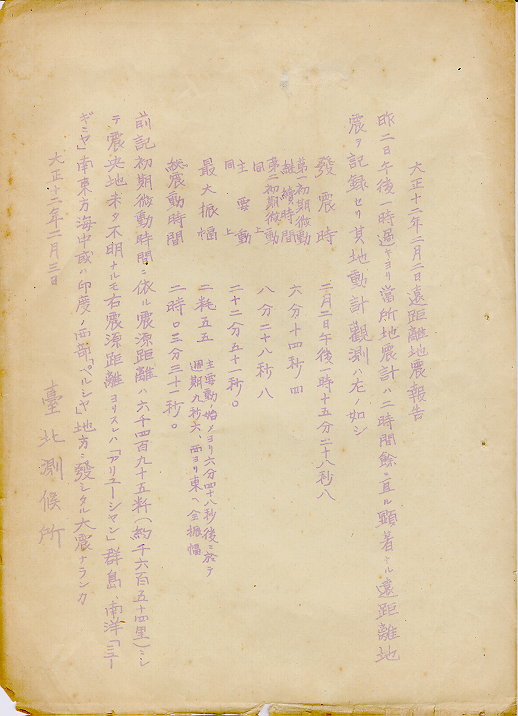 大正十二年二月二日遠距離地震報告
昨二日午後一時過ギヨリ當所地震計ハ二時間餘ニ亘ル顕著ナル遠距離地
震ヲ記録セリ其地動計觀測ハ左ノ如シ
發震時 二月二日午後一時十五分二十八秒八
第一初期微動繼續時間 六分十四秒四
第二初期微動同上 八分二十八秒八
主震動同上 二十二分五十一秒〇
最大振幅 二粍五五 主震動ノ始メヨリ六分四十八秒後ニ於テ
週期九秒六 西ヨリ東ヘ全振幅
総震動時間 二時〇三分三十一秒〇
前記初期微動時間ニ依ル震源距離ハ六千四百九十五粁(約千六百五十四里)ニシ
テ震央地未タ不明ナルモ右震源距離ヨリスレハ「アリューシャン」群島、南洋「ニュー
ギニヤ」南東方海中或ハ印度ノ西部「ペルシヤ」地方ニ發シタル大震ナランカ
大正十二年二月三日
臺北測候所